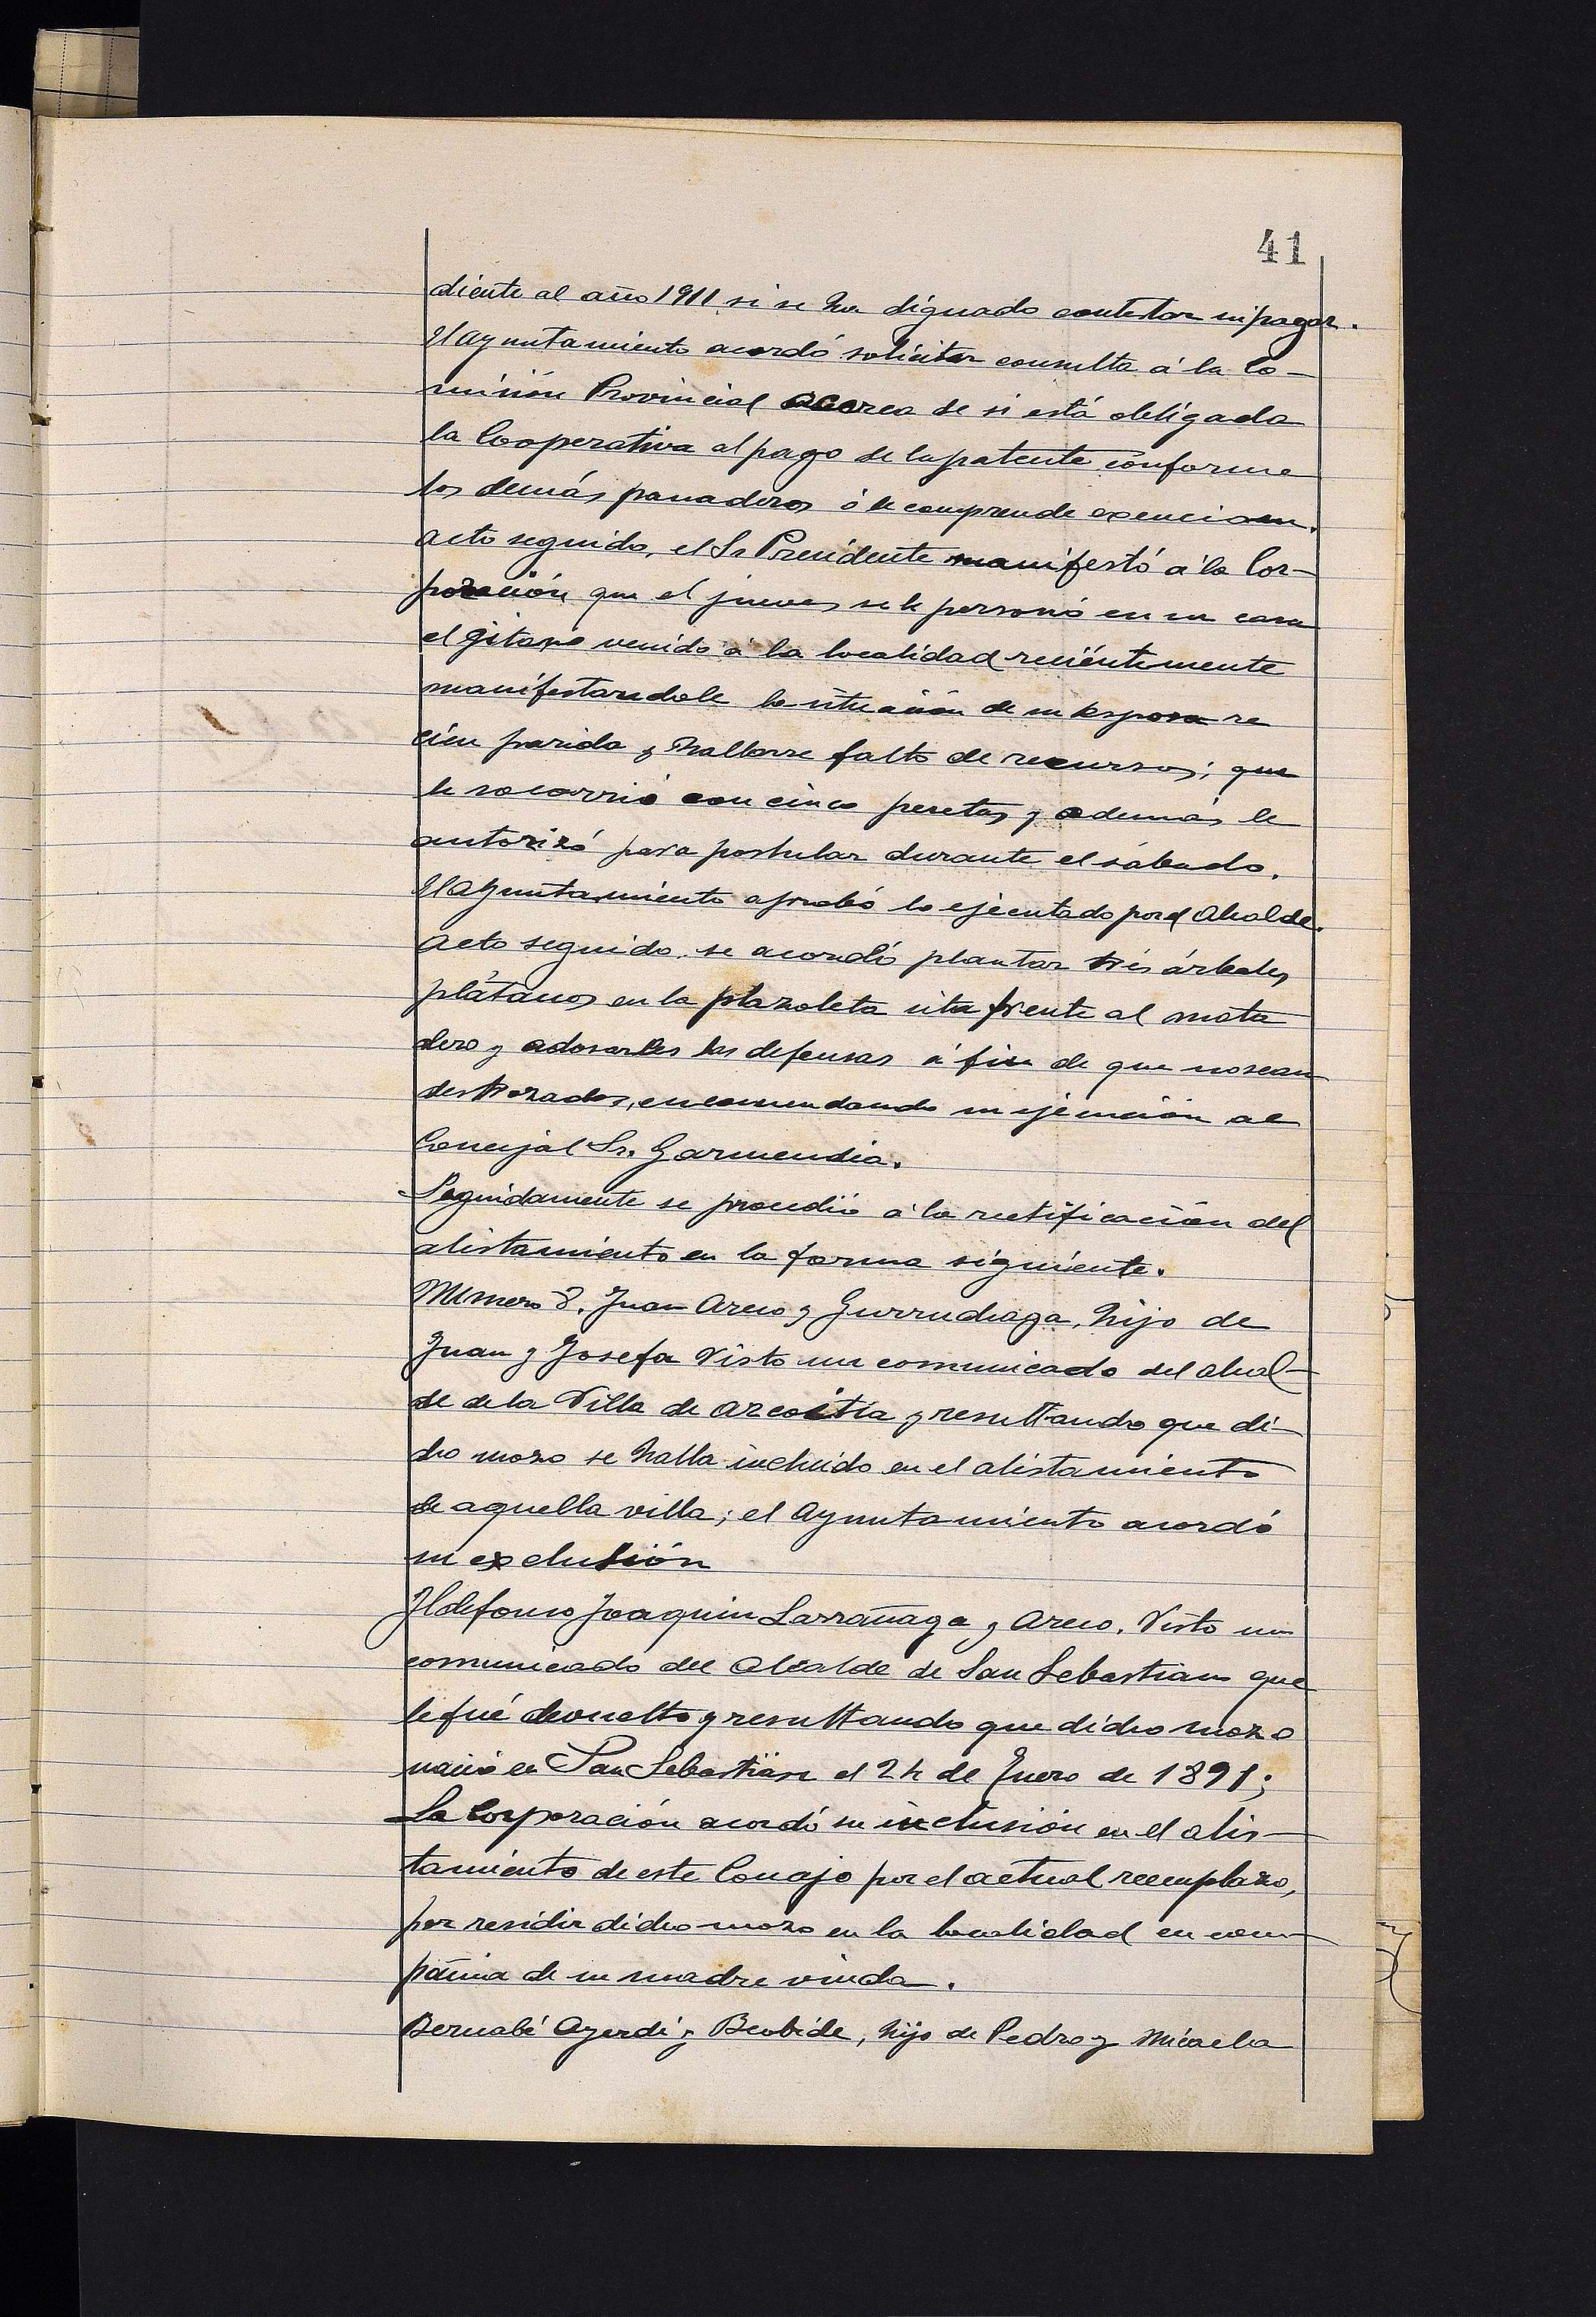 41
diente al año 1911 si se ha dignado contestar ni pagar.
El Ayuntamiento acordó solicitar consulta á la Co-
misión Provincial acerca de si está obligada
la Cooperativa al pago de la patente conforme
los demás panaderos ó le comprende exención.
Acto seguido, el Sr Presidente manifestó á la Cor-
poración que el jueves se le personó en su casa
el gitano venido á la localidad reciéntemente
manifestandole la situación de su esposa re
cien parida y hallarse falto de recursos; que
le socorrió con cinco pesetas y además le
autorizó para postular durante el sábado.
El Ayuntamiento aprobó lo ejecutado por el Alcalde.
Acto seguido, se acordó plantar trés árboles
plátanos en la plazoleta sita frente al mata
dero y adosarles las defensas á fin de que no sean
destrozados, encomendando su ejecución al
Concejal Sr. Garmendia.
Seguidamente se procedió á la rectificación del
alistamiento en la forma siguiente.
Número 8. Juan Areio y Gurruchaga, hijo de
Juan y Josefa Visto un comunicado del Alcal-
de de la Villa de Azcoitia y resultando que di-
cho mozo se halla incluido en el alistamiento
de aquella villa; el Ayuntamiento acordó
su exclusión
Ildefonso Joaquin Larrañaga y Areio. Visto un
comunicado del Alcalde de San Sebastian que
le fué devuelto y resultando que dicho mozo
nació en San Sebastián el 24 de Enero de 1891;
La Corporación acordó su inclusión en el alis-
tamiento de este Concejo por el actual reemplazo,
por residir dicho mozo en la localidad en com-
pañia de su madre viuda.
Bernabé Ayerdi y Beobide, hijo de Pedro y Micaela